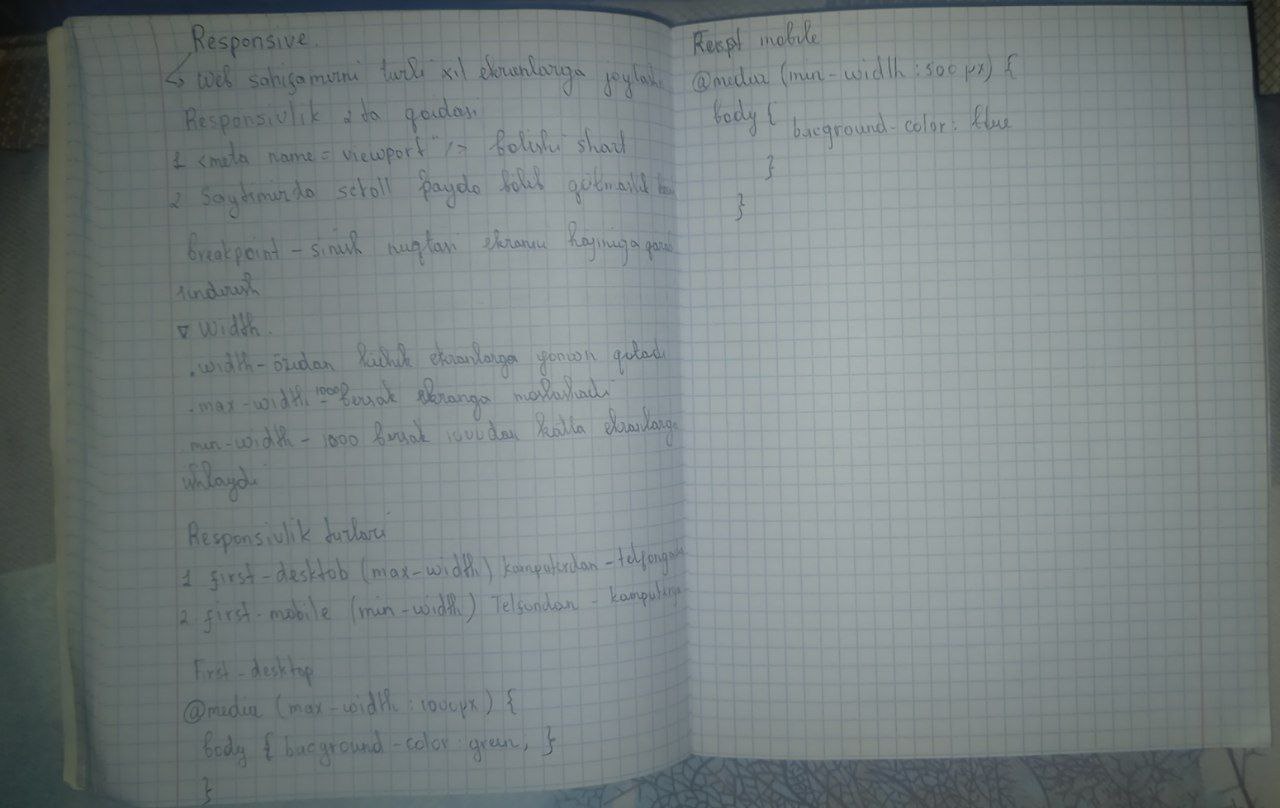 Responsive.
↳ Web sahifamizni turli xil ekranlarga joylash
Responsivlik 2 ta qoidasi
1 <meta name = viewport" /> bolishi shart
2 Saytimizda scroll paydo bolib qolmaslik
breakpoint - sinish nuqtasi ekranni hajmiga qarab
sindirish
▽ Width.
.width - özidan kichik ekranlarga yomon qoladi
.max-width 1000 - bersak ekranga moslashadi
min-width - 1000 bersak 1000dan katta ekranlarga
ishlaydi
Responsivlik turlari
1 first-desktob (max-width) kamputerdan - telfonga
2 first-mobile (min-width) Telfondan - kamputerga
First-desktop
@media (max-width : 1000px) {
body { bacground-color : green, }
}
mobile
@media (min-width : 500 px) {
body {
bacground-color : blue
}
}